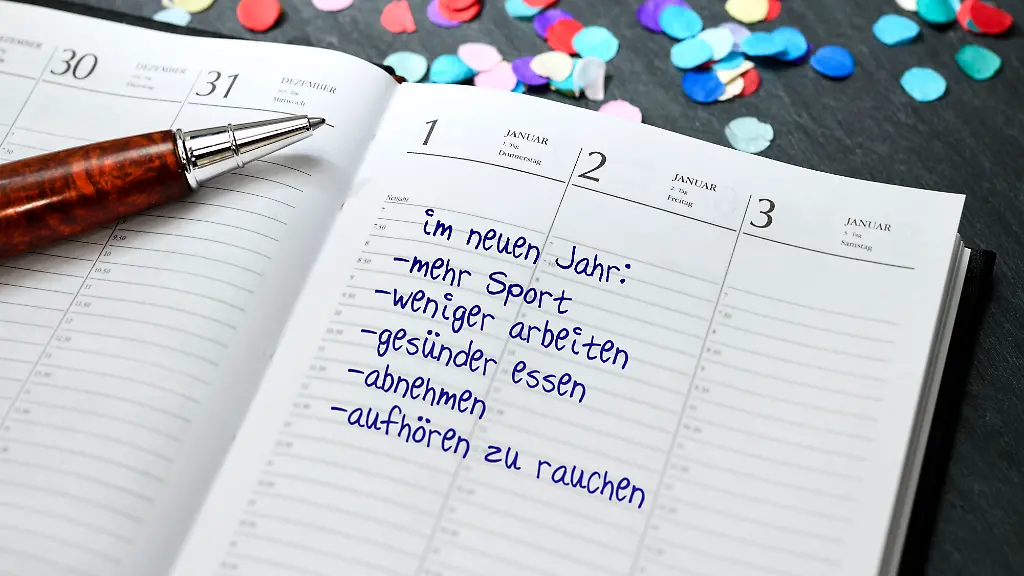 DEZEMBER
30
DEZEMBER
Dienstag
31
DEZEMBER
Mittwoch
1
JANUAR
1. Tag
Donnerstag
2
JANUAR
2. Tag
Freitag
3
JANUAR
3. Tag
Samstag
Neujahr
im neuen Jahr:
-mehr Sport
-weniger arbeiten
-gesünder essen
-abnehmen
-aufhören zu rauchen